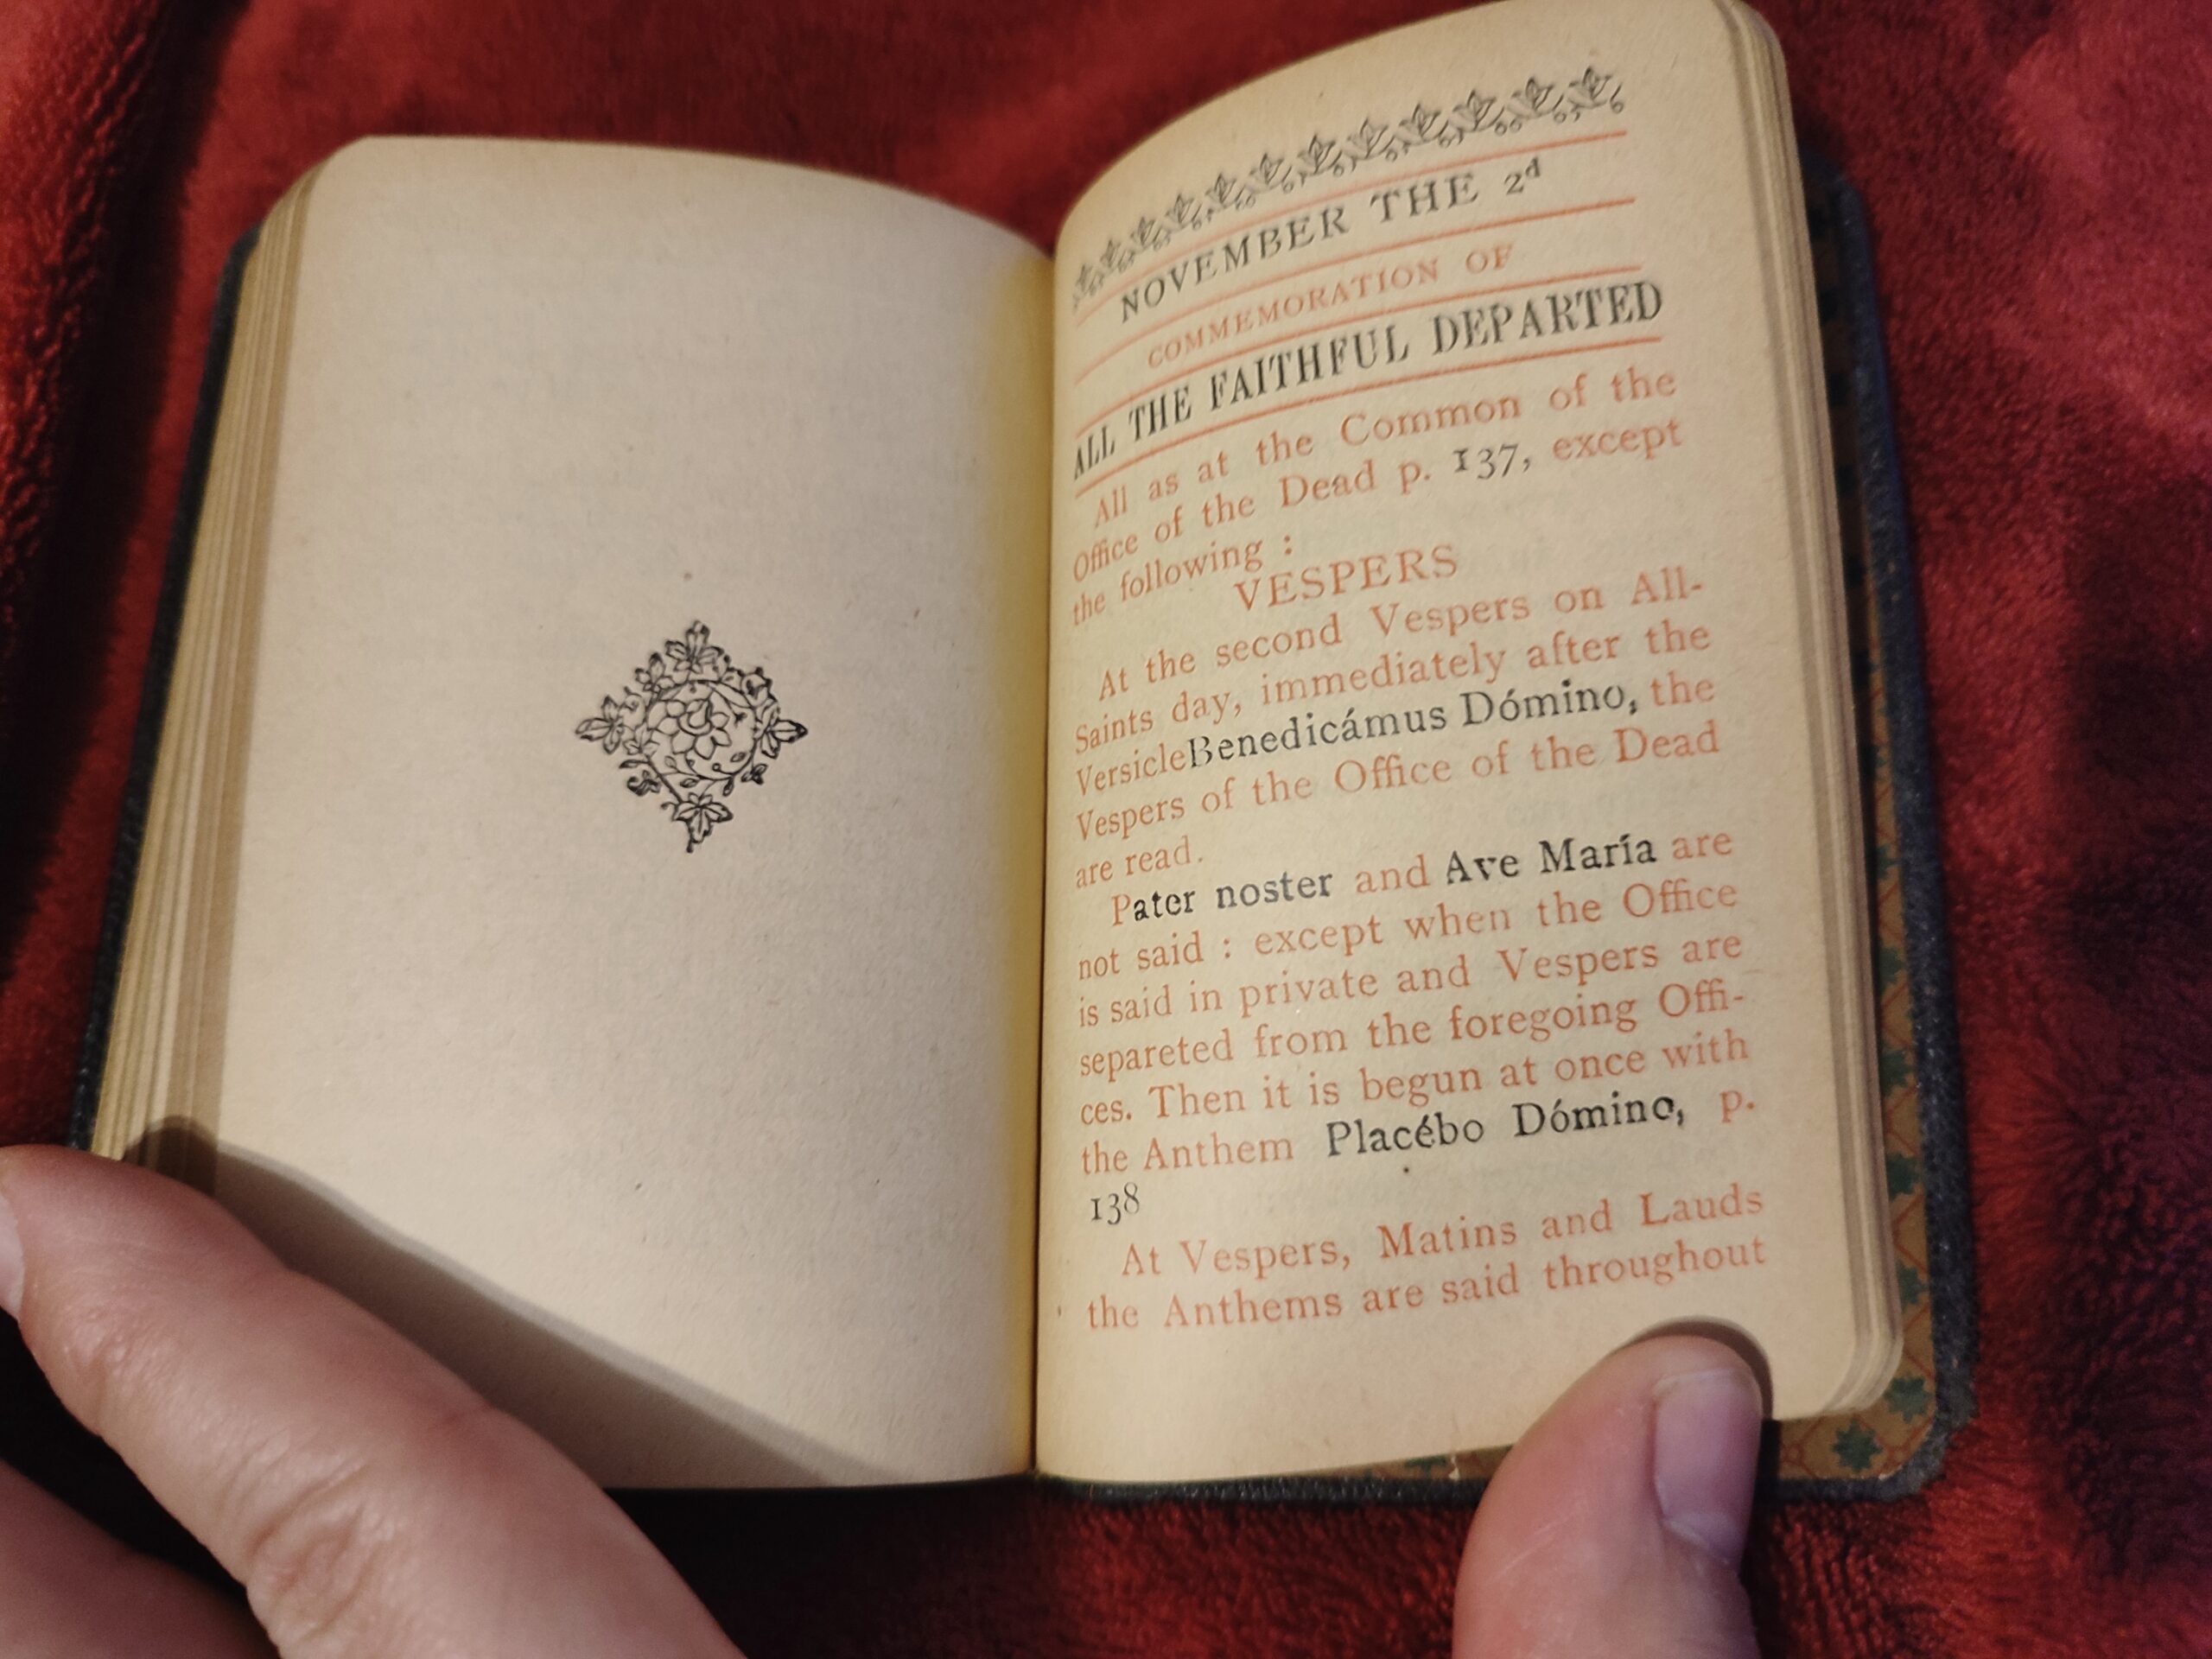 NOVEMBER THE 2d
COMMEMORATION OF
ALL THE FAITHFUL DEPARTED
All as at the Common of the
Office of the Dead p. 137, except
the following :
VESPERS
At the second Vespers on All-
Saints day, immediately after the
Versicle Benedicámus Dómino, the
Vespers of the Office of the Dead
are read.
Pater noster and Ave María are
not said : except when the Office
is said in private and Vespers are
separeted from the foregoing Offi-
ces. Then it is begun at once with
the Anthem Placébo Dómino, p.
138
At Vespers, Matins and Lauds
the Anthems are said throughout